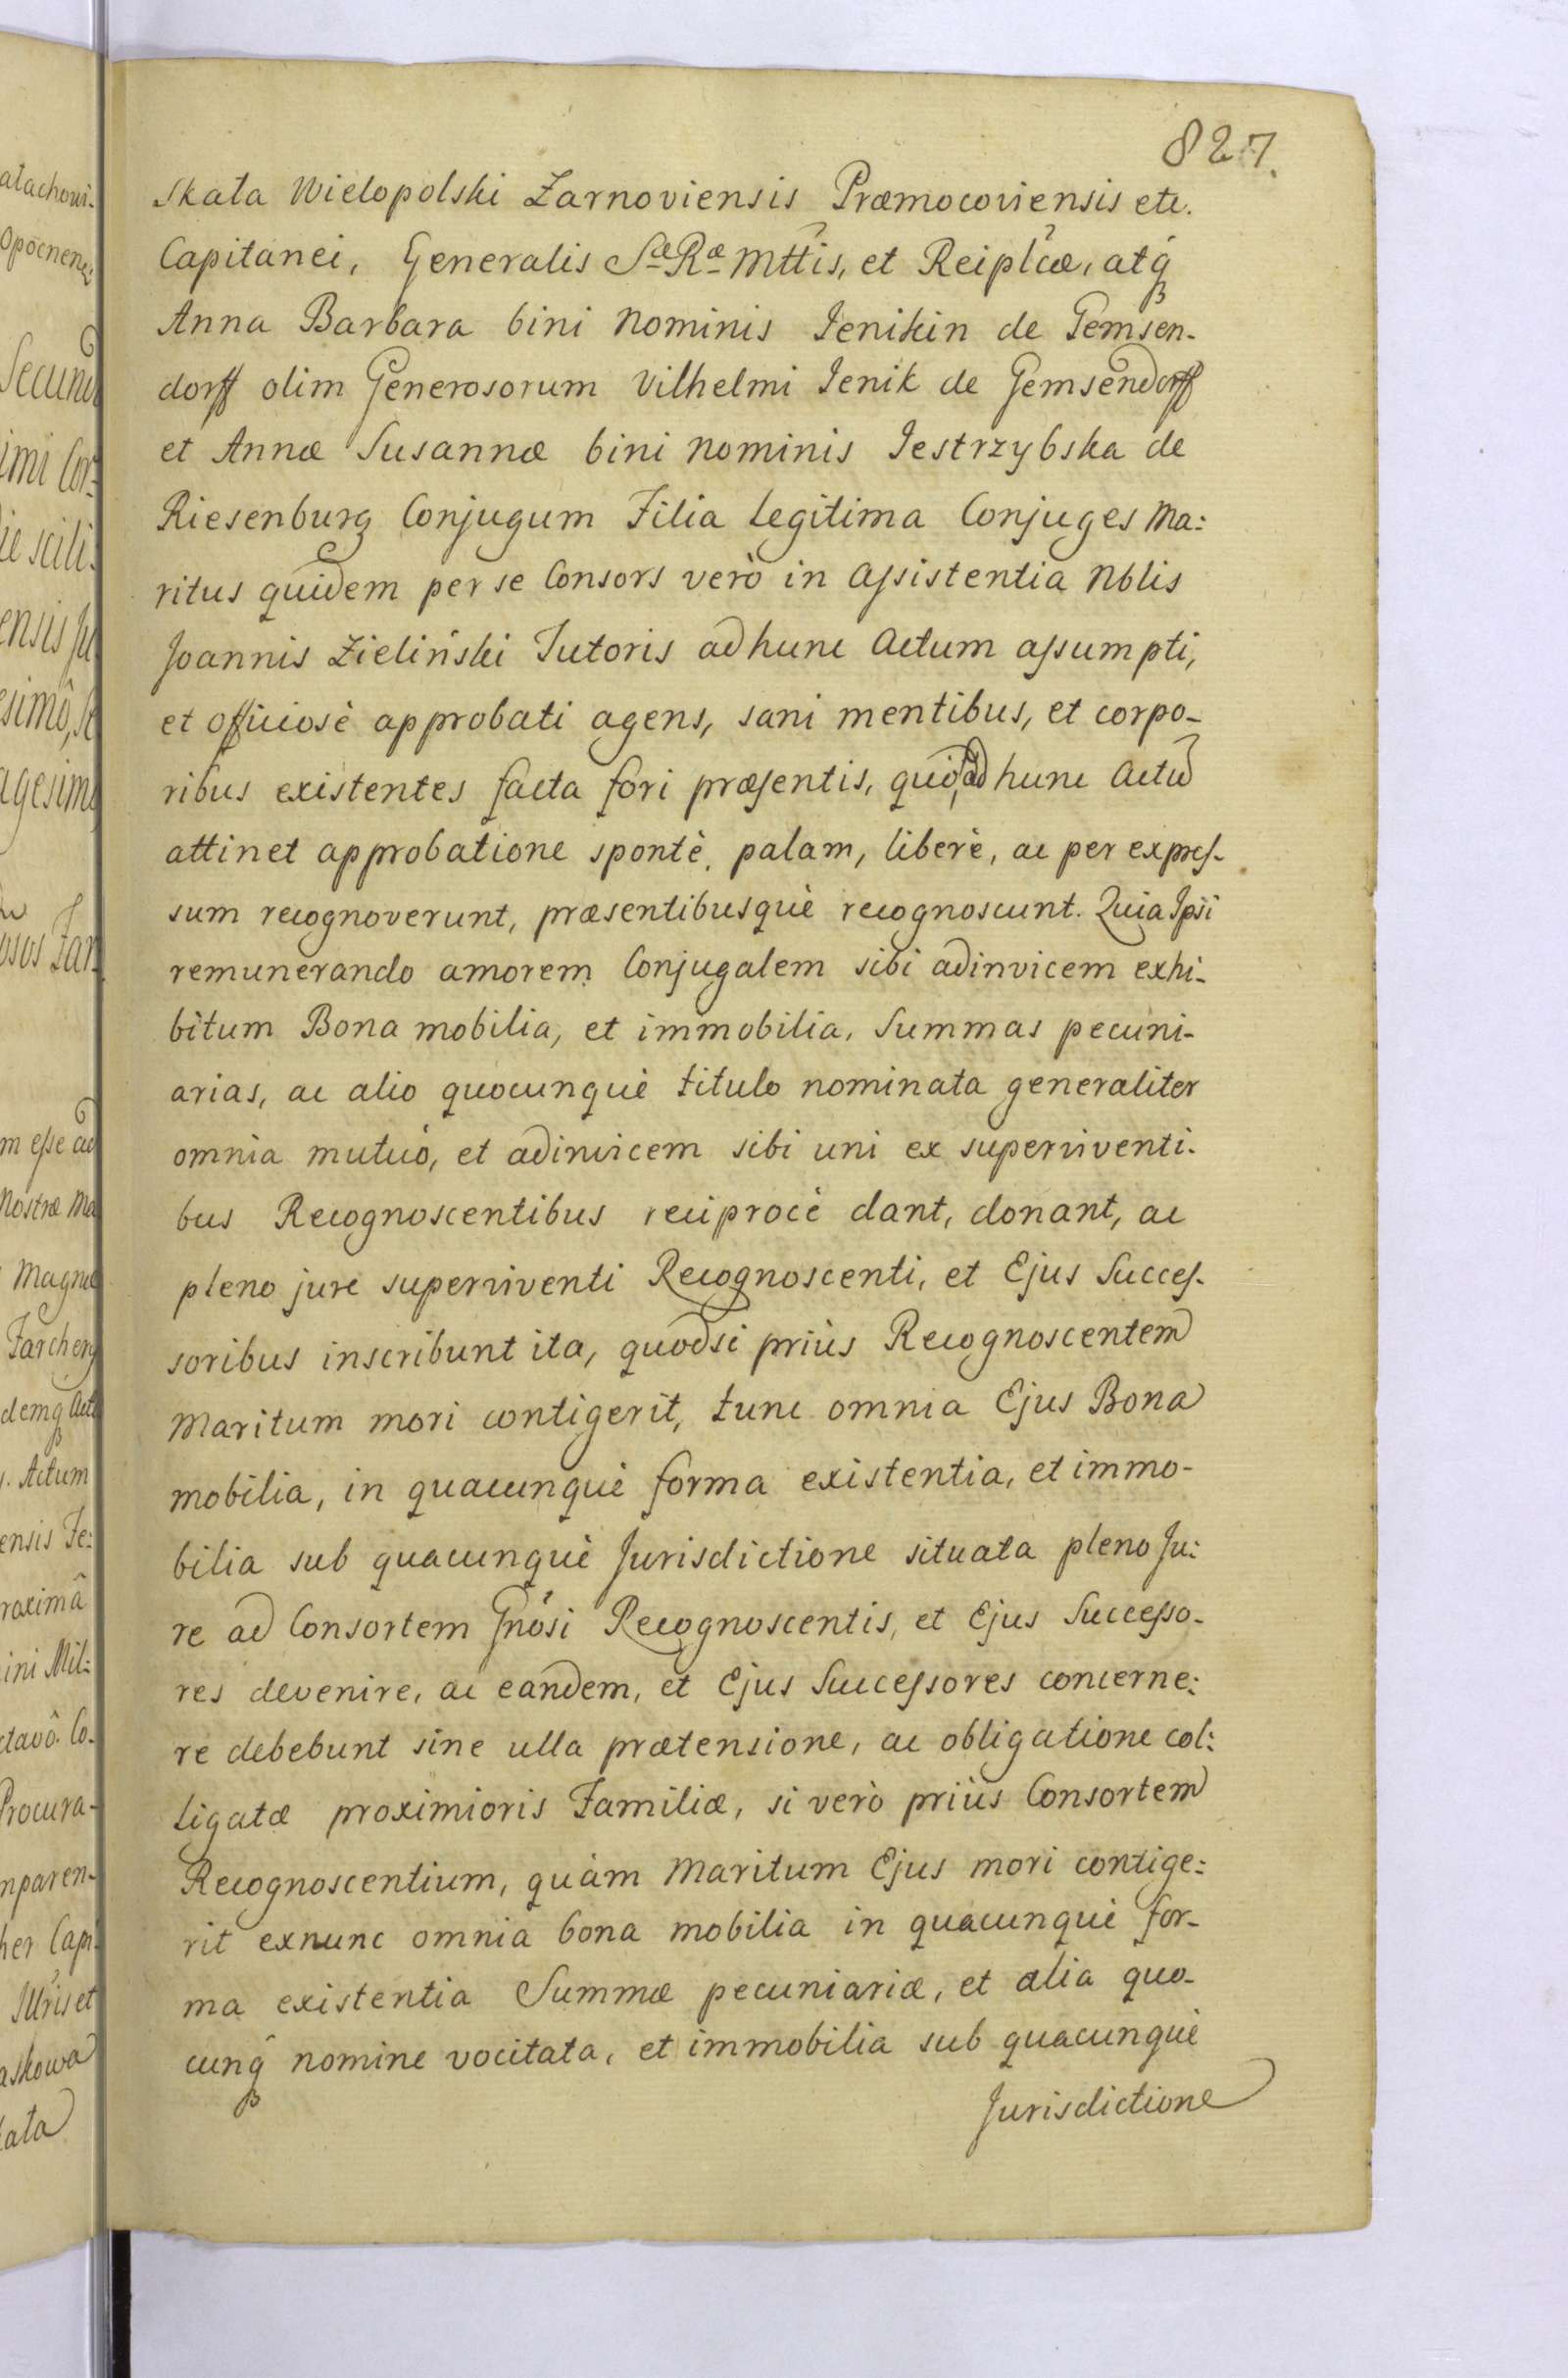 827.
Skała Wielopolski Żarnoviensis Præmocoviensis etc.
Capitanei, Generalis Sæ Ræ Mttis, et Reiplcæ, atq̃
Anna Barbara bini Nominis Jenikin de Gemsen-
dorff olim Generosorum Vilhelmi Jenik de Gemsendorff
et Annæ Susannæ bini Nominis Jestrzybska de
Riesenburg Conjugum Filia legitima Conjuges Ma:
ritus quidem per se Consors verò in Assistentia Nblis
Joannis Zieliński Tutoris ad hunc Actum assumpti,
et officiosè approbati agens, sani mentibus, et corpo-
ribus existentes facta fori præsentis, quo ad hunc Actũ
attinet approbatione spontè, palam, liberè, ac per expres-
sum recognoverunt, præsentibusquè recognoscunt. Quia Ipsi
remunerando amorem Conjugalem sibi adinvicem exhi-
bitum Bona mobilia, et immobilia, Summas pecuni-
arias, ac alio quocunquè titulo nominata generaliter
omnia mutuò, et adinvicem sibi uni ex superviventi-
bus Recognoscentibus reciprocè dant, donant, ac
pleno jure superviventi Recognoscenti, et Ejus Succes-
soribus inscribunt ita, quodsi priùs Recognoscentem
Maritum mori contigerit, tunc omnia Ejus Bona
mobilia, in quacunquè forma existentia, et immo-
bilia sub quacunquè Jurisdictione situata pleno Ju:
re ad Consortem Gnosi Recognoscentis, et Ejus Successo-
res devenire, ac eandem, et Ejus Successores concerne:
re debebunt sine ulla prætensione, ac obligatione col:
ligatæ proximioris Familiæ, si verò priùs Consortem
Recognoscentium, quàm Maritum Ejus mori contige:
rit exnunc omnia bona mobilia in quacunquè for-
ma existentia Summæ pecuniariæ, et alia quo-
cunq̃ nomine vocitata, et immobilia sub quacunquè
Jurisdictione